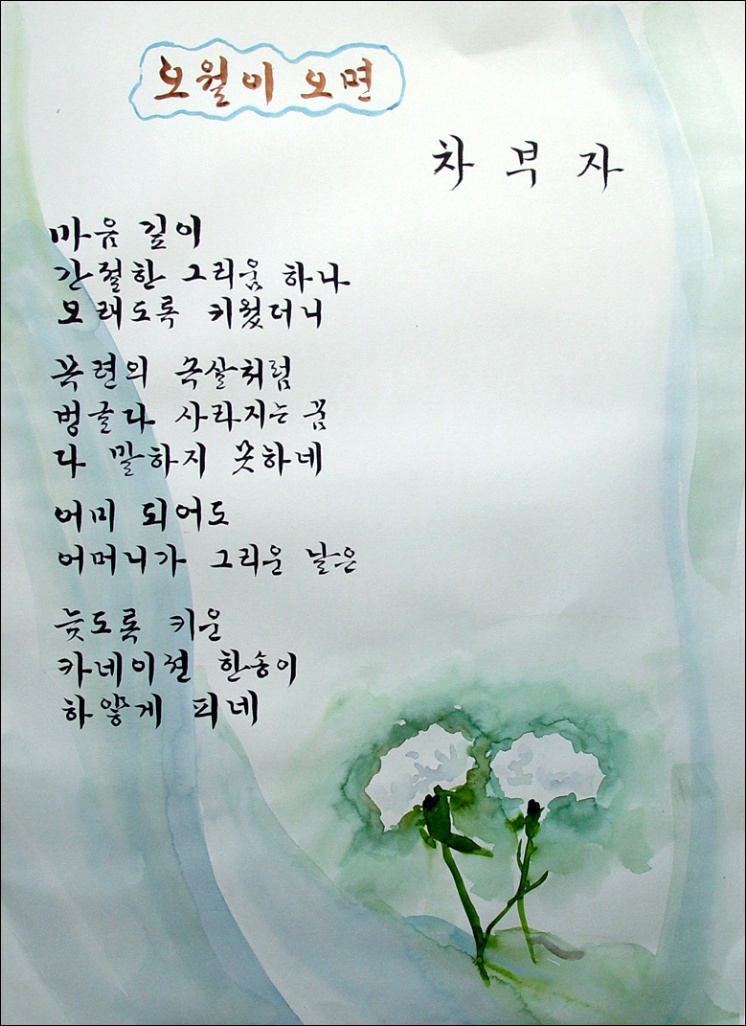 오월이 오면
차부자
마음 깊이
간절한 그리움 하나
오래도록 키웠더니
목련의 속살처럼
벙글다 사라지는 꿈
다 말하지 못하네
어미 되어도
어머니가 그리운 날은
늦도록 키운
카네이션 한송이
하얗게 피네